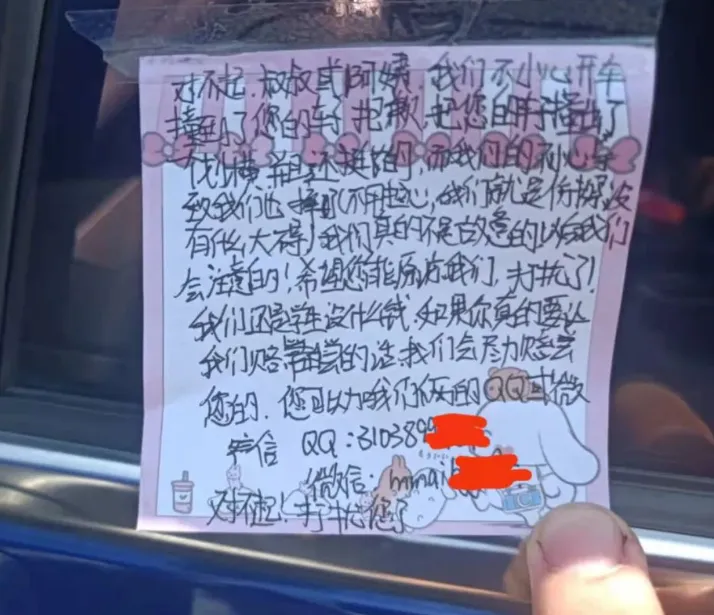 对不起，叔叔或阿姨，我们不小心开车
撞到了您的车子抱歉，把您的车子撞出了
划横，还挺，而我们的不小心
致我们也摔了(不用担心，我们就是
有什么大碍)我们真的不是故意的以后我们
会注意的！希望您能原谅我们，打扰了！
我们还是学生没什么钱，如果你真的要让
我们赔偿的话，我们会尽力赔尝
您的，您可以加我们家的QQ或微
信 QQ：3103899
微信：
对不起！打扰您了